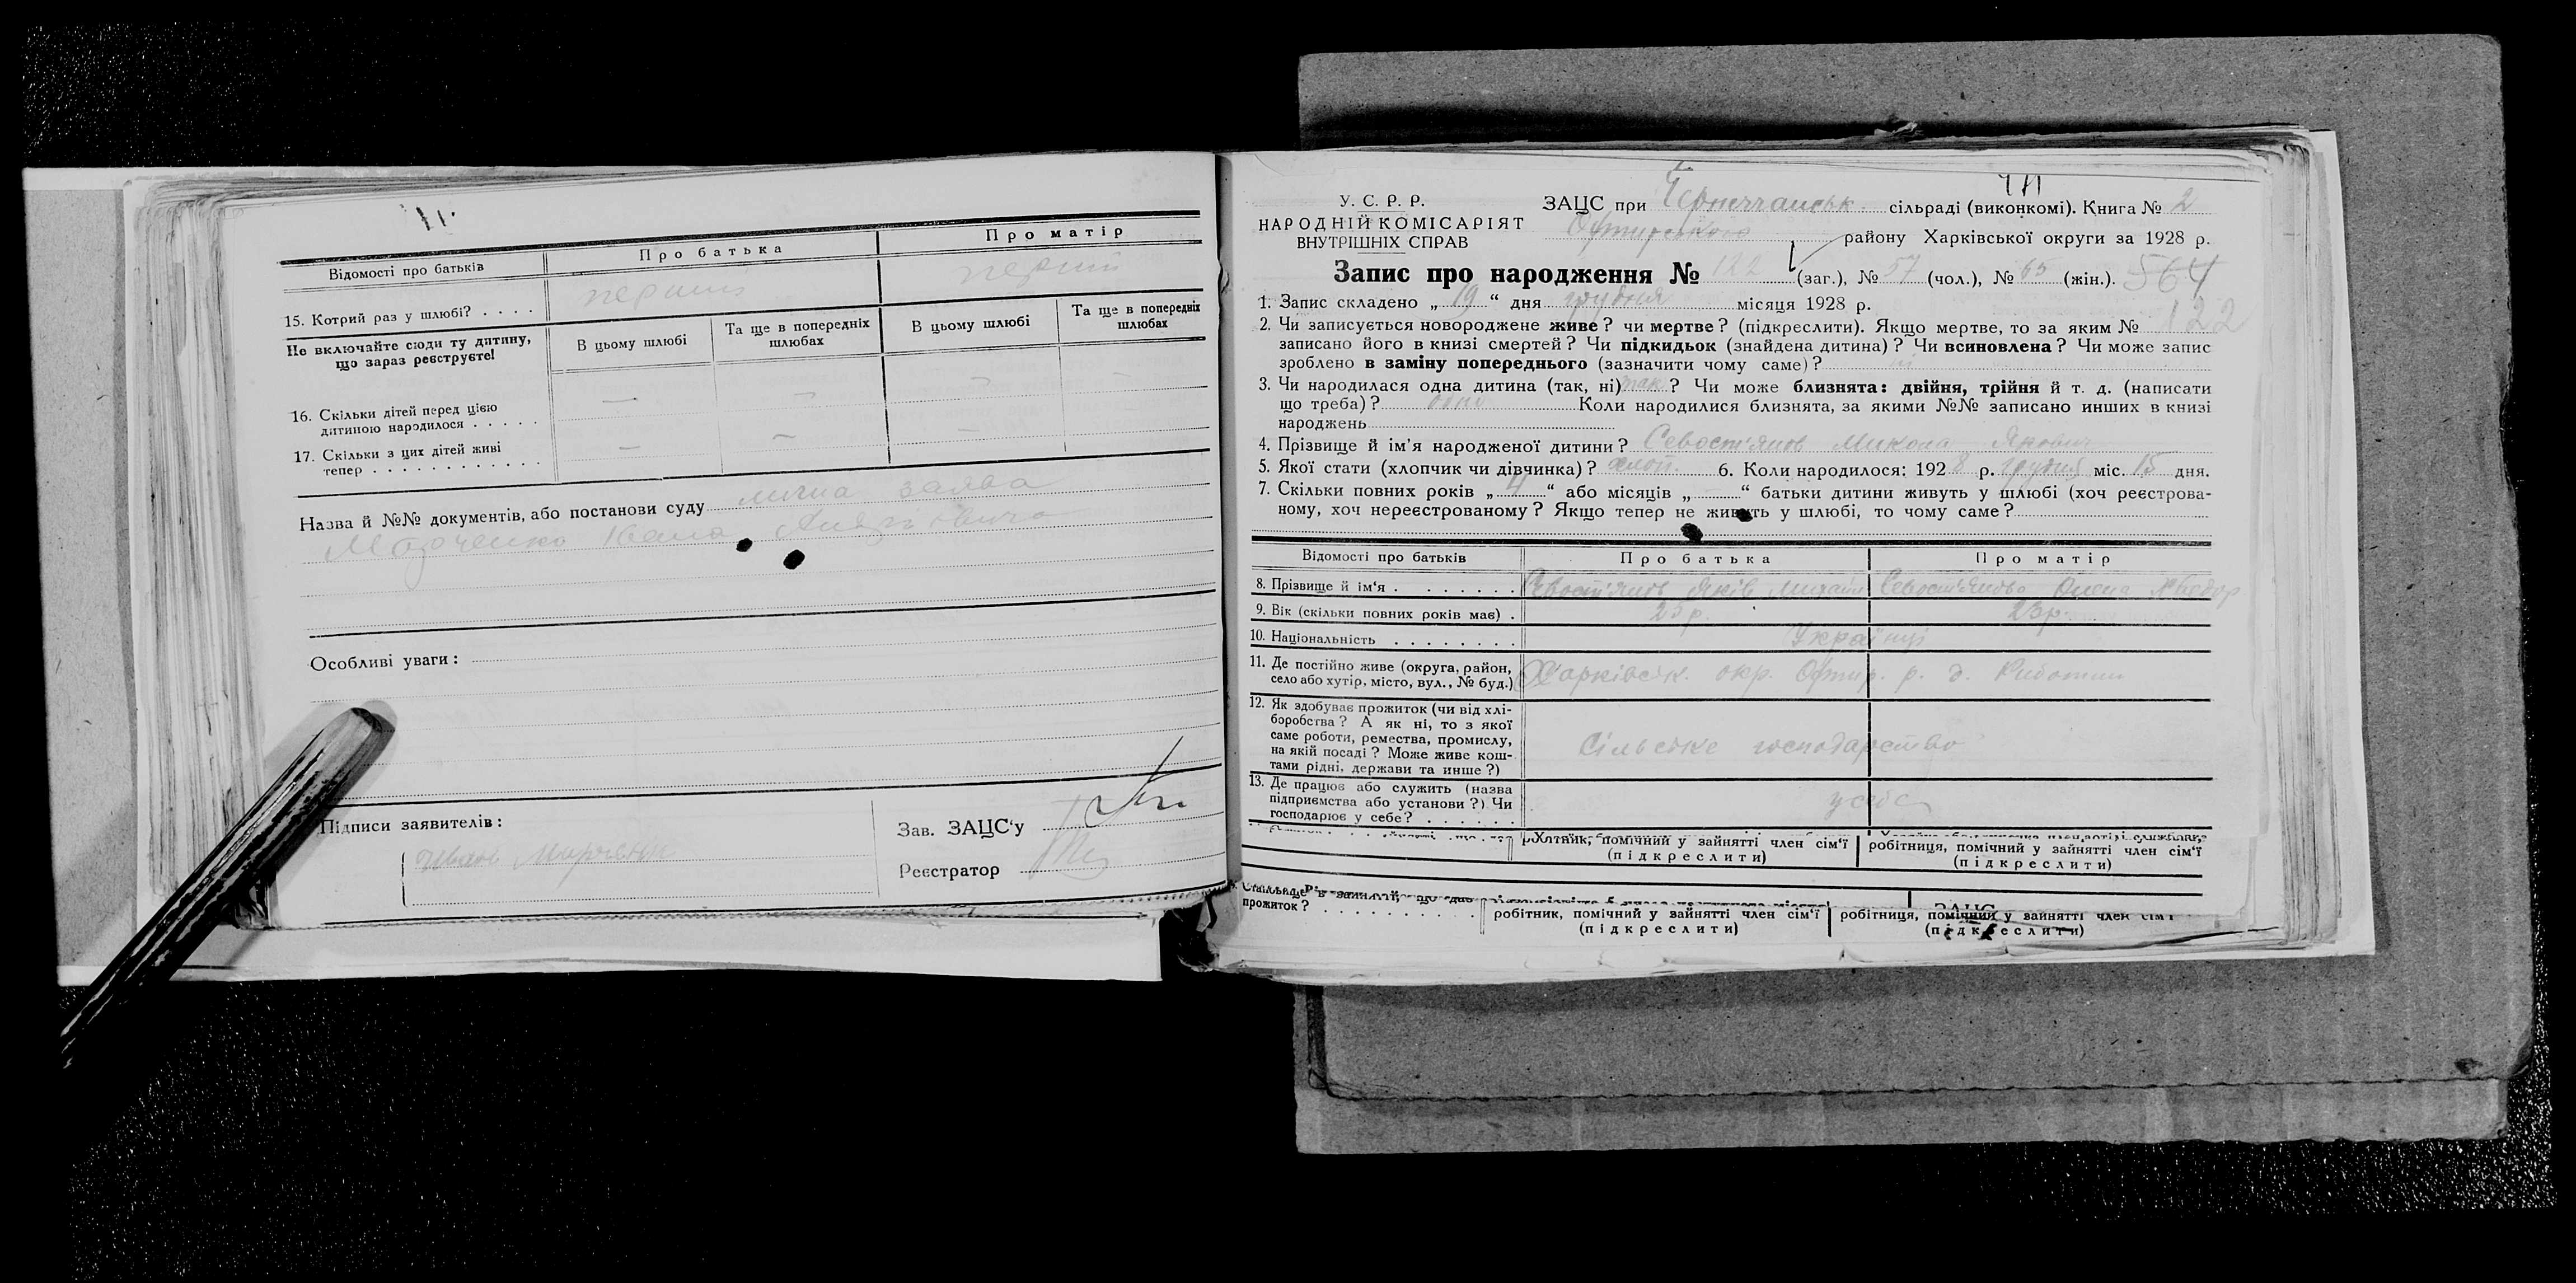 Відомості про батьків
Про батька
Про матір
15. Котрий раз у шлюбі? . . . .
перший
перший
Не включайте сюди ту дитину, що зараз реєструєте!
В цьому шлюбі
Та ще в попередніх шлюбах
В цьому шлюбі
Та ще в попередніх шлюбах
16. Скільки дітей перед цією
дитиною народилося . . . . .
— — — —
17. Скільки з цих дітей живі
тепер . . . . . . . . . . . .
— — — —
Назва й №№ документів, або постанови суду личка заява
Івана
Особливі уваги:
Підписи заявителів:
Іван
Зав. ЗАЦС‘у
Реєстратор
У. С. Р. Р.
НАРОДНІЙ КОМІСАРІЯТ
ВНУТРІШНІХ СПРАВ
ЗАЦС при Чернеччанськ. сільраді (виконкомі). Книга № 2
Охтирського району Харківської округи за 1928 р.
Запис про народження № 122 (заг.), № 57 (чол.), № 65 (жін.). 564
122
1. Запис складено „ 19 “ дня грудня місяця 1928 р.
2. Чи записується новороджене живе? чи мертве? (підкреслити). Якщо мертве, то за яким №
записано його в книзі смертей? Чи підкидьок (знайдена дитина)? Чи всиновлена? Чи може запис
зроблено в заміну попереднього (зазначити чому саме)? ні
3. Чи народилася одна дитина (так, ні) так ? Чи може близнята: двійня, трійня й т. д. (написати
що треба)? одно Коли народилися близнята, за якими №№ записано инших в книзі
народжень
4. Прізвище й ім’я народженої дитини? Севост'янов Микола Якович
5. Якої стати (хлопчик чи дівчинка)? хлоп. 6. Коли народилося: 1928 р. грудня міс. 15 дня.
7. Скільки повних років „ 4 “ або місяців „ “ батьки дитини живуть у шлюбі (хоч реєстрова-
ному, хоч нереєстрованому? Якщо тепер не живуть у шлюбі, то чому саме?
Відомості про батьків
Про батька
Про матір
8. Прізвище й ім‘я . . . . . . .
Севост'янов Яків Михайл
Севост'янова Олена Хведор
9. Вік (скільки повних років має) .
23 р.
10. Національність . . . . . . .
Українці
11. Де постійно живе (округа, район,
село або хутір, місто, вул., № буд.)
Харківськ. окр. Охтир. р. д.
12. Як здобуває прожиток (чи від хлі-
боробства? А як ні, то з якої
саме роботи, ремества, промислу,
на якій посаді? Може живе кош-
тами рідні, держави та инше?)
Сільське господарство
13. Де працює або служить (назва
підприємства або установи?) Чи
господарює у себе? . . . . . .
у себе
помічний у зайнятті член сім‘ї
(підкреслити)
робітниця, помічний у зайнятті член сім‘ї
(підкреслити)
прожиток? . . . . . . . . . .
робітник, помічний у зайнятті член сім‘ї
(підкреслити)
робітниця, помічний у зайнятті член сім‘ї
(підкреслити)